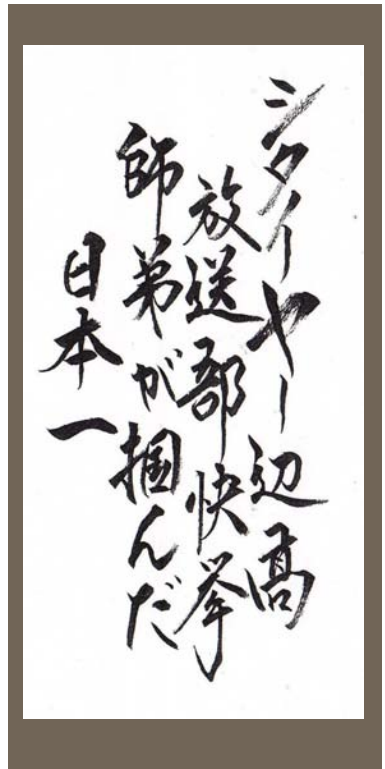 シターヤー辺高
放送部快挙
師弟が掴んだ
日本一